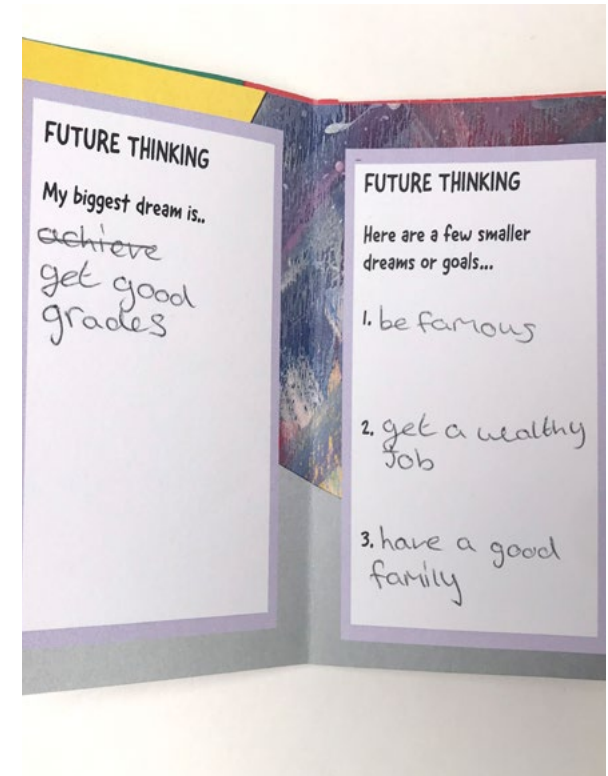 FUTURE THINKING
My biggest dream is..
achieve
get good
grades
FUTURE THINKING
Here are a few smaller
dreams or goals...
1. be famous
2. get a wealthy
Job
3. have a good
family